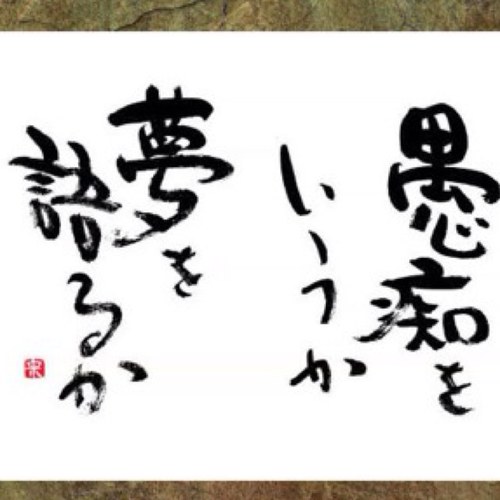 愚痴を
いうか
夢を
語るか